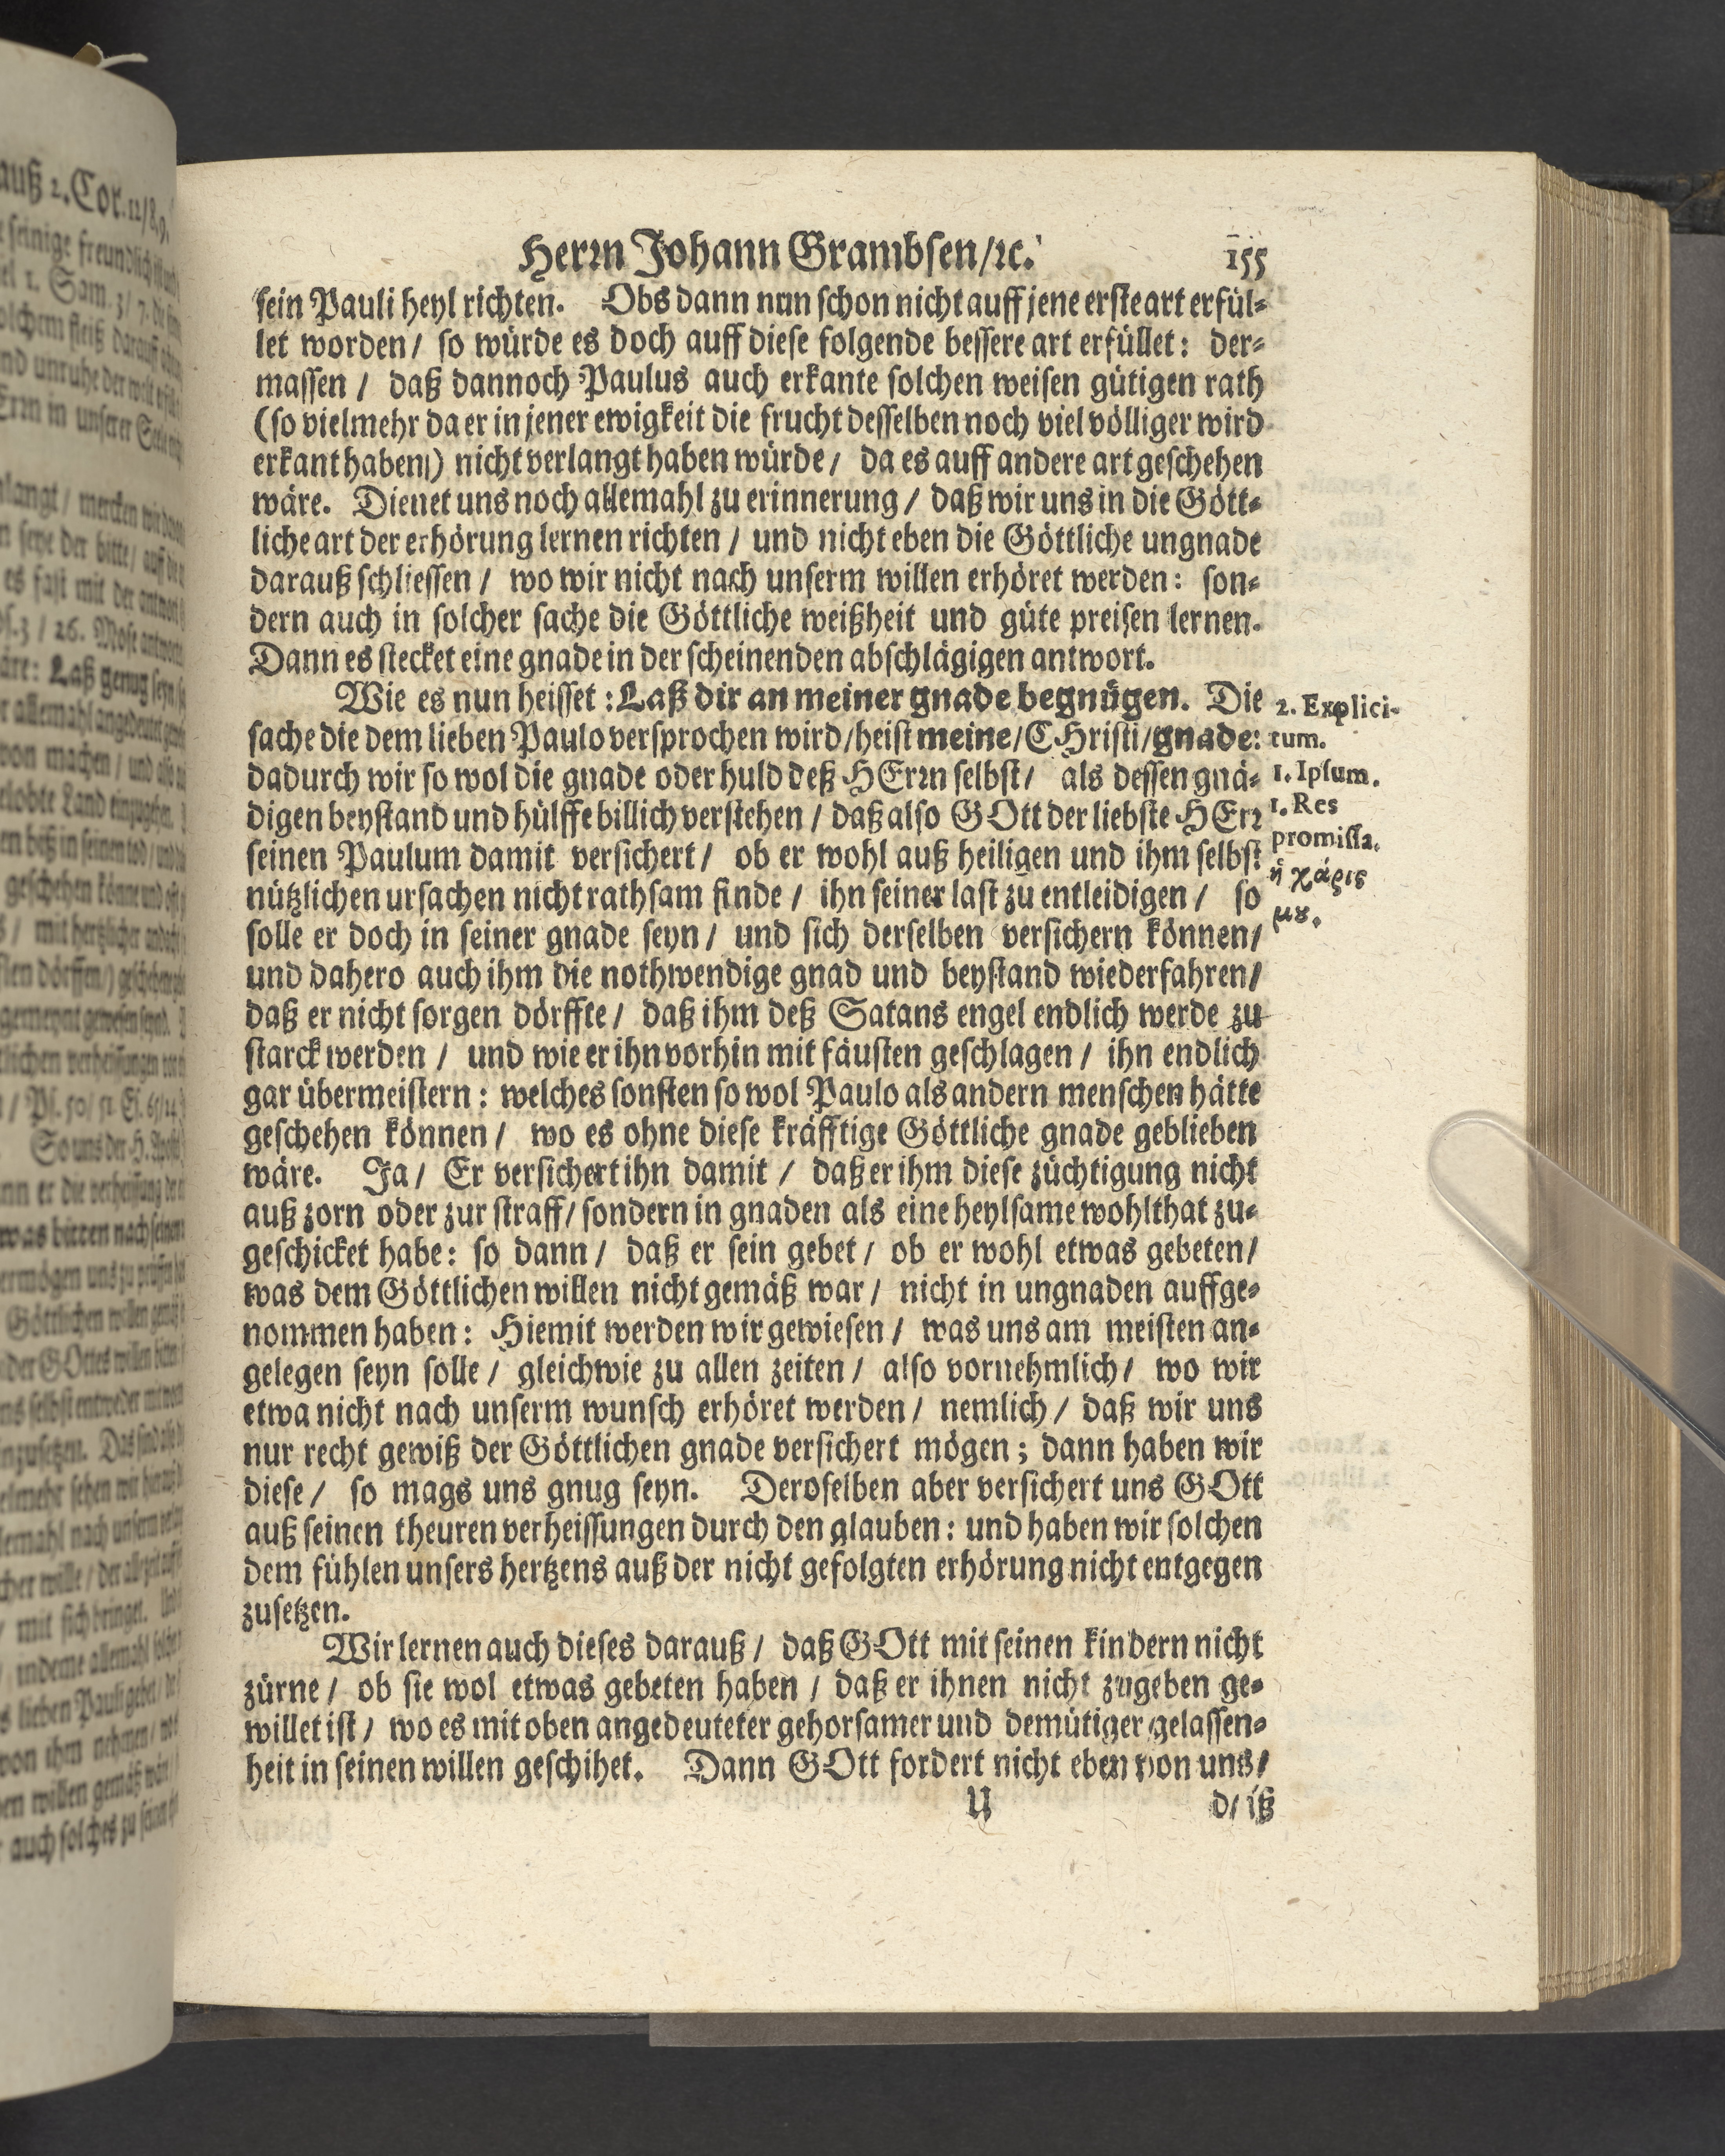 Herrn Johann Grambsen/ꝛc. 155
sein Pauli heyl richten. Obs dann nun schon nicht auff jene erste art erfül-
let worden/ so würde es doch auff diese folgende bessere art erfüllet: der-
massen / daß dannoch Paulus auch erkante solchen weisen gütigen rath
(so vielmehr da er in jener ewigkeit die frucht desselben noch viel völliger wird
erkant haben/) nicht verlangt haben würde / da es auff andere art geschehen
wäre. Dienet uns noch allemahl zu erinnerung / daß wir uns in die Gött-
liche art der erhörung lernen richten / und nicht eben die Göttliche ungnade
darauß schliessen / wo wir nicht nach unserm willen erhöret werden: son-
dern auch in solcher sache die Göttliche weißheit und güte preisen lernen.
Dann es stecket eine gnade in der scheinenden abschlägigen antwort.
Wie es nun heisset: Laß dir an meiner gnade begnügen. Die
sache die dem lieben Paulo versprochen wird/heist meine/CHristi/gnade:
dadurch wir so wol die gnade oder huld deß HErrn selbst/ als dessen gnä-
digen beystand und hülffe billich verstehen / daß also GOtt der liebste HErr
seinen Paulum damit versichert/ ob er wohl auß heiligen und ihm selbst
nützlichen ursachen nicht rathsam finde / ihn seiner last zu entleidigen / so
solle er doch in seiner gnade seyn / und sich derselben versichern können/
und dahero auch ihm die nothwendige gnad und beystand wiederfahren/
daß er nicht sorgen dörffte / daß ihm deß Satans engel endlich werde zu
starck werden / und wie er ihn vorhin mit fäusten geschlagen / ihn endlich
gar übermeistern: welches sonsten so wol Paulo als andern menschen hätte
geschehen können / wo es ohne diese kräfftige Göttliche gnade geblieben
wäre. Ja / Er versichert ihn damit / daß er ihm diese züchtigung nicht
auß zorn oder zur straff/ sondern in gnaden als eine heylsame wohlthat zu-
geschicket habe: so dann / daß er sein gebet / ob er wohl etwas gebeten/
was dem Göttlichen willen nicht gemäß war / nicht in ungnaden auffge-
nommen haben: Hiemit werden wir gewiesen / was uns am meisten an-
gelegen seyn solle / gleichwie zu allen zeiten / also vornehmlich / wo wir
etwa nicht nach unserm wunsch erhöret werden / nemlich / daß wir uns
nur recht gewiß der Göttlichen gnade versichert mögen; dann haben wir
diese / so mags uns gnug seyn. Deroselben aber versichert uns GOtt
auß seinen theuren verheissungen durch den glauben: und haben wir solchen
dem fühlen unsers hertzens auß der nicht gefolgten erhörung nicht entgegen
zusetzen.
Wir lernen auch dieses darauß / daß GOtt mit seinen kindern nicht
zürne / ob sie wol etwas gebeten haben / daß er ihnen nicht zugeben ge-
willet ist / wo es mit oben angedeuteter gehorsamer und demütiger gelassen-
heit in seinen willen geschihet. Dann GOtt fordert nicht eben von uns/
U d/ iß
2. Explici-
tum.
1. Ipsum.
1. Res
promissa.
ἡ χάρις
μȣ.